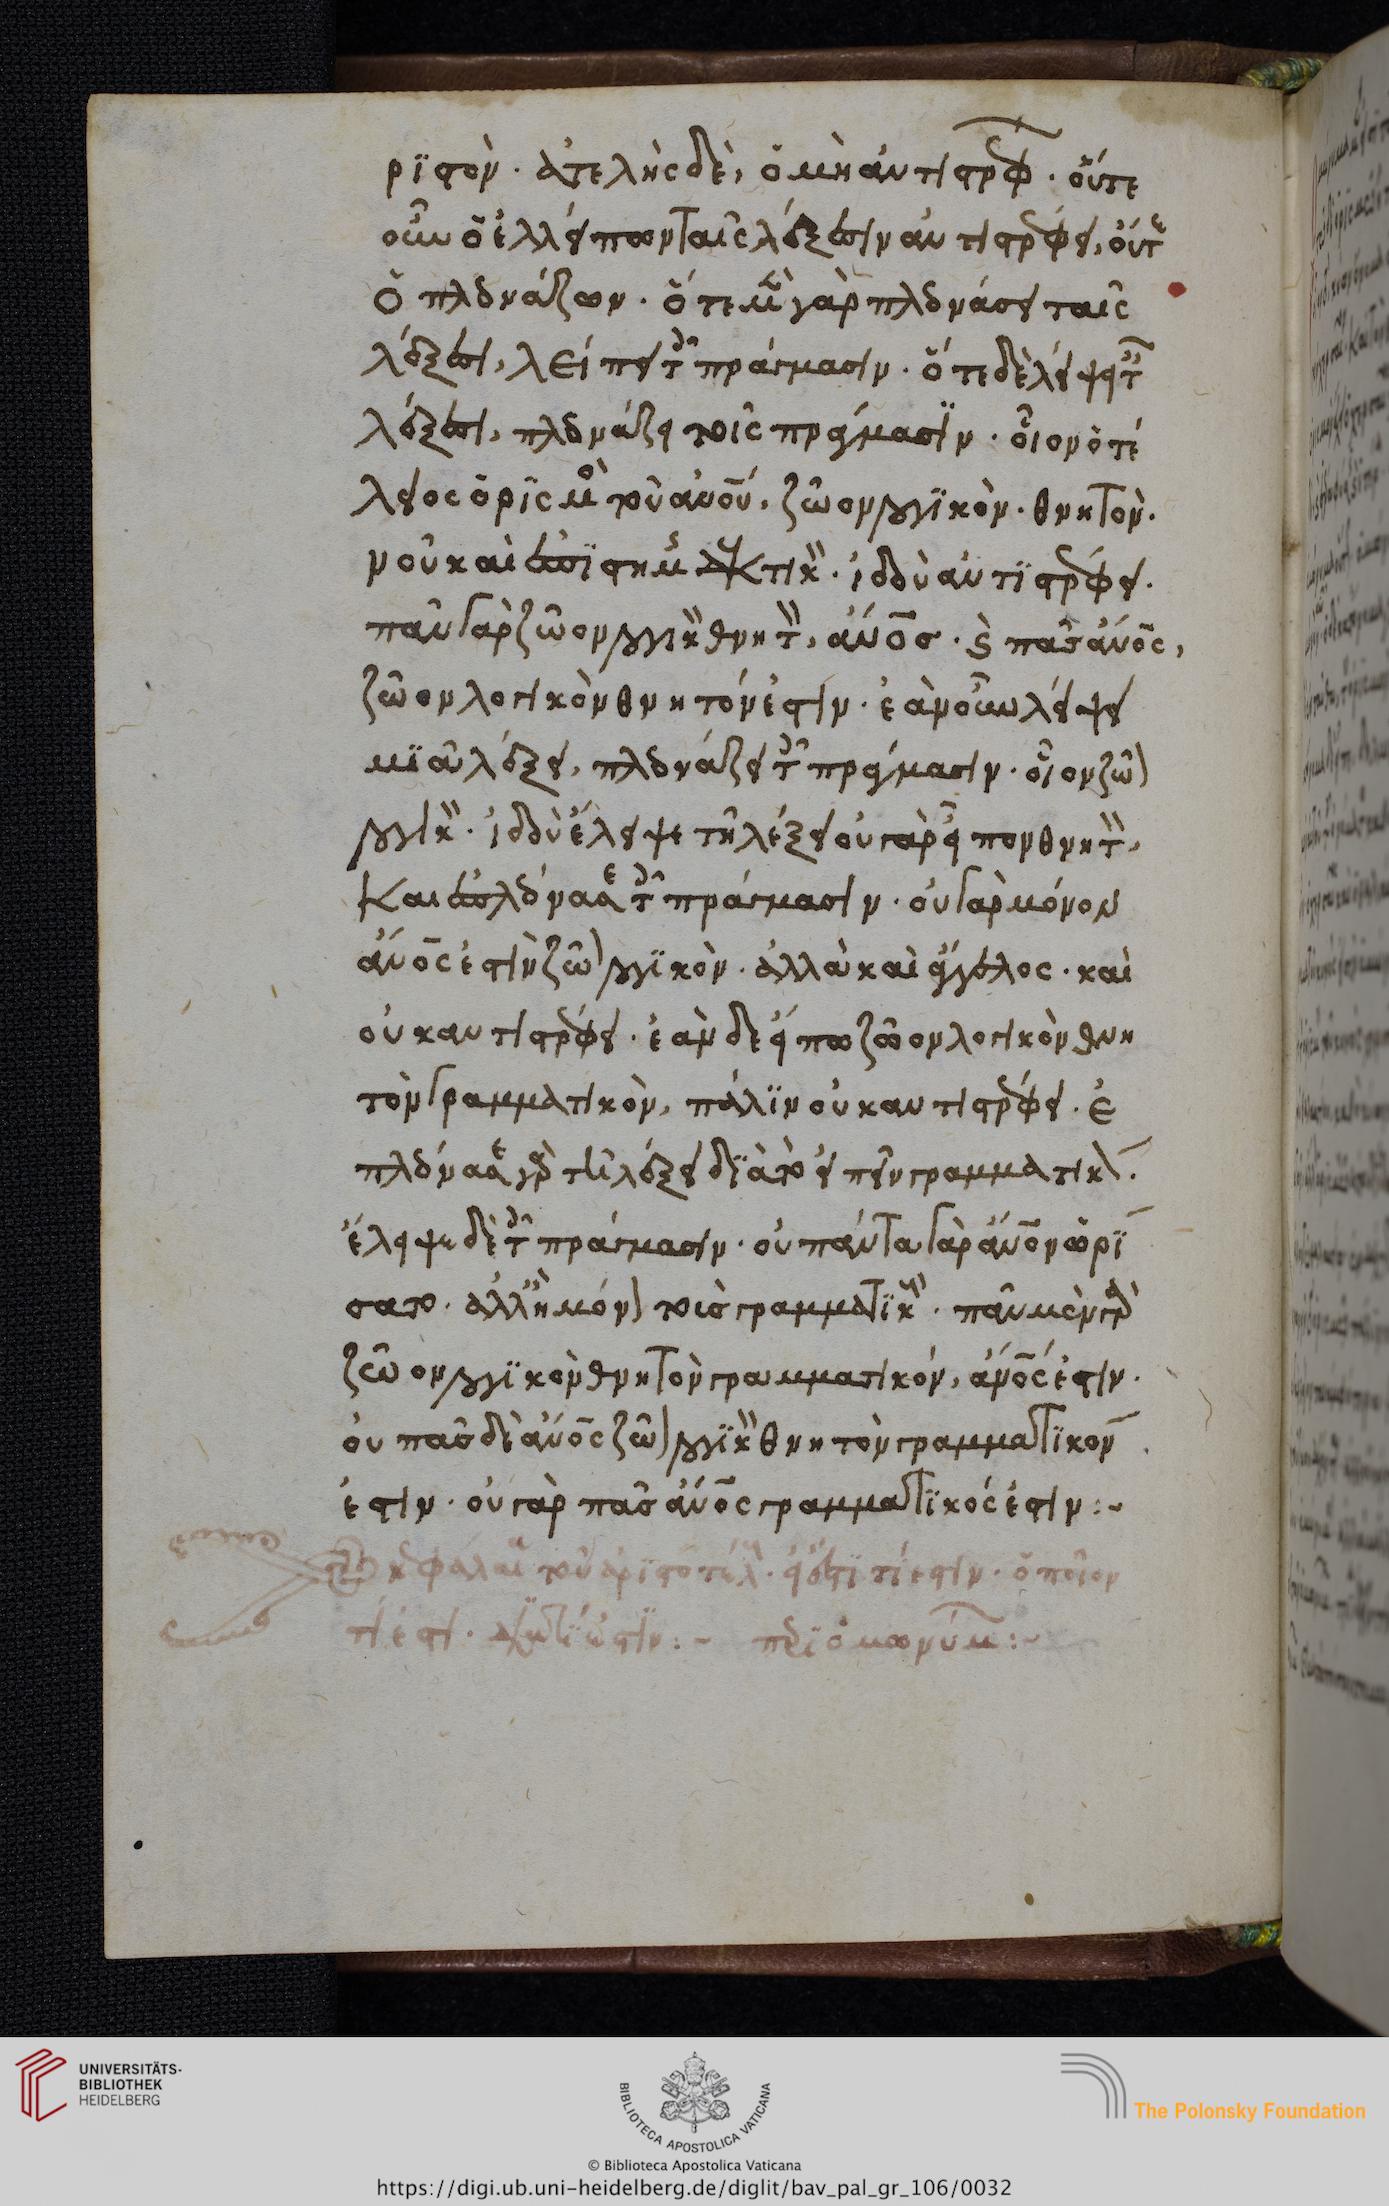 ριστον. ἀτελὴς δὲ, ὁ μὴ ἀντιστρέφων. οὔτε
οὖν ὁ ἐλλείπων ταῖς λέξεσιν ἀντιστρέφει, οὔτε
ὁ πλεονάζων. ὅτε μὲν γὰρ πλεονάσει ταῖς
λέξεσι, λείπει τοῖς πράγμασιν. ὅτε δὲ λείψει ταῖς
λέξεσι, πλεονάζει τοῖς πράγμασιν. οἷον ὁ τέ
λειος ὁρισμὸς τοῦ ἀνου, ζῶον λογικὸν. θνητὸν.
νοῦ καὶ ἐπιστήμης δεκτικὸν. ἰδοὺ ἀντιστρέφει.
πᾶν γὰρ ζῶον λογικὸν θνητὸν, ἄνος. καὶ πᾶς ἄνος,
ζῶον λογικὸν θνητόν ἐστιν. ἐὰν οὖν λείψει
μία λέξει, πλεονάζει τοῖς πράγμασιν. οἷον ζῶον
λογικὸν. ἰδοὺ ἔλειψε τῆ λέξει οὐ γὰρ εἶπον θνητὸν,
καὶ ἐπλεόνασε τοῖς πράγμασιν. οὐ γὰρ μόνον
ἄνος ἐστὶν ζῶον λογικὸν. ἀλλὰ καὶ ἄγγελος. καὶ
οὐκ αντιστρέφει. ἐὰν δὲ εἴπω ζῶον λογικὸν θνη
τὸν γραμματικὸν, πάλιν οὐκ αντιστρέφει. ἐ
πλεόνασε γὰρ τῆ λέξει διὰ το εἰπεῖν γραμματικὸν.
ἔλειψε δὲ τοῖς πράγμασιν. οὐ πάντα γὰρ ἄνον ὡρί
σατο. ἀλλὰ μόνον τοὺς γραμματικοὺς. πᾶν μὲν γὰρ
ζῶον λογικὸν θνητὸν γραμματικόν, ἄνός ἐστιν.
οὐ πᾶς δὲ ἄνος ζῶον λογικὸν θνητὸν γραμματικον
ἐστιν. οὐ γὰρ πᾶς ἄνος γραμματικός ἐστιν:~
κεφάλαια τοῦ ἀριστοτέλους. εἰ ἔστι τί ἐστιν. ὁποῖον
τί ἐστι. διὰ τί ἐστιν:~ περὶ ὁμωνύμων:~
UNIVERSITÄTS-
BIBLIOTHEK
HEIDELBERG
BIBLIOTECA APOSTOLICA VATICANA
© Biblioteca Apostolica Vaticana
The Polonsky Foundation
https://digi.ub.uni-heidelberg.de/diglit/bav_pal_gr_106/0032